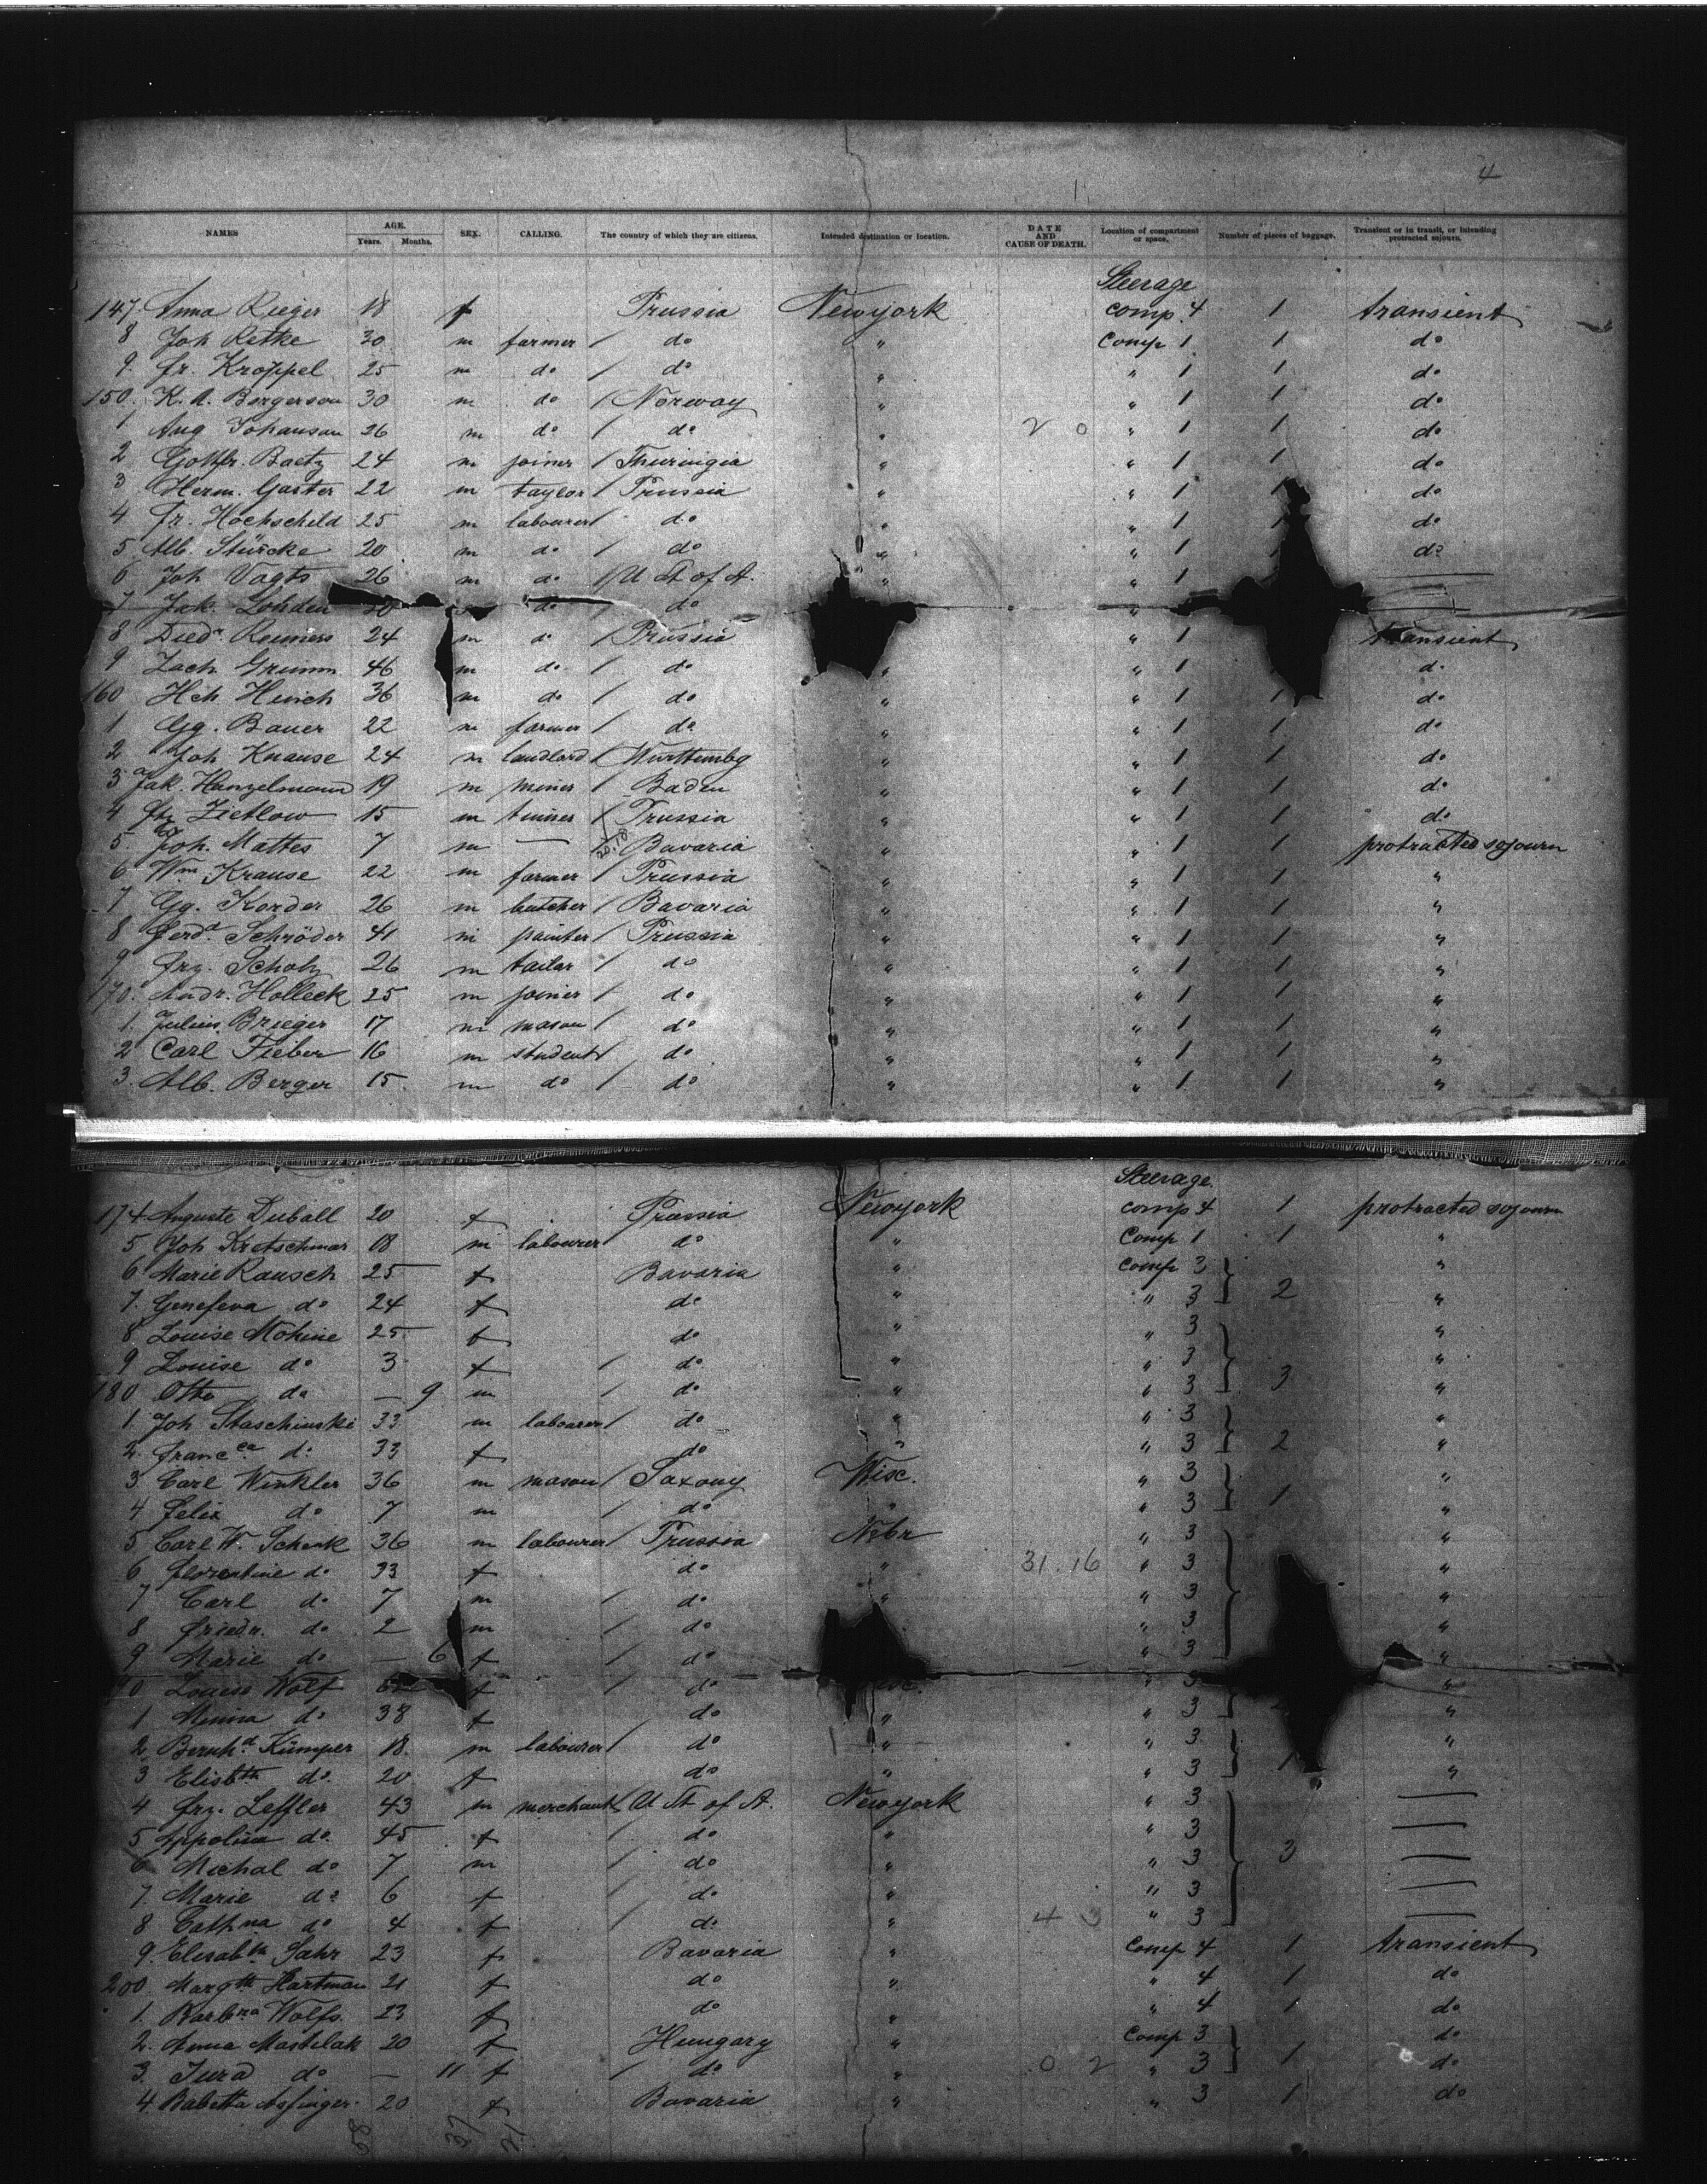 4
NAMES AGE. Years. Months. SEX. CALLING. The country of which they are citizens. Intended destination or location. DATE AND CAUSE OF DEATH. Location of compartment or space. Number of pieces of baggage. Transient or in transit, or intending protracted sojourn.
Steerage
147. Anna Rieger 18 f Prussia Newyork comp. 4 1 transient
8 Joh Retke 30 m farmer / do " Comp 1 1 do
9. Fr. Kroppel 25 m do / do " " 1 1 do
150. K. A. Bergerson 30 m do / Norway " " 1 1 do
1 Aug Johanson 26 m do / do " 2 0 " 1 1 do
2 Gottfr. Baetz 24 m joiner / Thuringia " " 1 1 do
3 Herm. Garter 22 m taylor / Prussia " " 1 1 do
4 Fr. Hochschild 25 m labourer / do " " 1 1 do
5 Alb. Stürcke 20 m do / do " " 1 1 do
6 Joh Vagts 26 m do / U St of A. " " 1 —
7 Jak. Lohden 30 do / do " —
8 Died. Reiners 24 m do / Prussia " 1 transient
9 Zach Grumm 46 m do / do " " 1 do
160 Hch Hinch 36 m do / do " " 1 1 do
1 Gg. Bauer 22 m farmer / do " " 1 1 do
2 Joh Knause 24 m landlord / Württembg " " 1 1 do
3 Jak. Hanzelmann 19 m miner / Baden " " 1 1 do
4 Zietlow 15 m / Prussia " " 1 1 do
5. Joh. Mattes 7 m — Bavaria " " 1 1 protracted sojourn
6 Wm Krause 22 m farmer / Prussia " " 1 1 "
7 Gg. Korder 26 m butcher / Bavaria " " 1 1 "
8 Ferd. Schröder 41 m painter / Prussia " " 1 1 "
9 Frz. Scholz 26 m tailor / do " " 1 1 "
170. Andr. Holleck 25 m joiner / do " " 1 1 "
1. Julius Brieger 17 m mason / do " " 1 1 "
2 Carl Fieber 16 m student / do " " 1 1 "
3. Alb. Berger 15 m do / do " " 1 1 "
Steerage.
174 Auguste Duball 20 f Prussia Newyork comp 4 1 protracted sojourn
5 Joh Kretschmar 18 m labourer do " Comp 1 1 "
6 Marie Rausch 25 f Bavaria " Comp 3 "
7. Genefeva do 24 f do " " 3 2 "
8 Louise Mohine 25 f do " " 3 "
9 Louise do 3 f / do " " 3 "
180 Otto do — 9 m / do " " 3 3 "
1. Joh Staschinski 33 m labourer / do " " 3 "
2. Franc.ca do 33 f do " " 3 2 "
3. Carl Winkler 36 m mason / Saxony Wisc. " 3 "
4 Felix do 7 m / do " " 3 1 "
5 Carl W. Schenk 36 m labourer / Prussia Nebr " 3 "
6 Florentine do 33 f do " 31.16 " 3 "
7 Carl do 7 m / do " " 3 "
8 Friedr. do 2 m / do " 3 "
9 Marie do — 6 f / do " 3 "
Louise Wolf f / do " 3 "
1 Minna do 38 f do " " 3 "
2 Bernhd Kümper 18. m labourer / do " " 3 "
3 Elisbth do. 20 f do " " 3 1 "
4 Frz. Leffler 43 m merchant / U St of A. Newyork " 3 —
5 Appolina do. 45 f / do " " 3 —
6 Michal do 7 m / do " " 3 3 —
7. Marie do 6 f / do " " 3 —
8 Cathna do 4 f / do " 4 3 " 3 —
9. Elisabth Sahr 23 f Bavaria " Comp 4 1 transient
200 Margth Hartman 21 f do " " 4 1 do
1. Barbra Wolfs. 23 f do " " 4 1 do
2. Anna Mastilak 20 f Hungary " Comp 3 do
3. Jura do — 11 f / do " 0 2 " 3 1 do
4. Babetta 20 f Bavaria " " 3 1 do